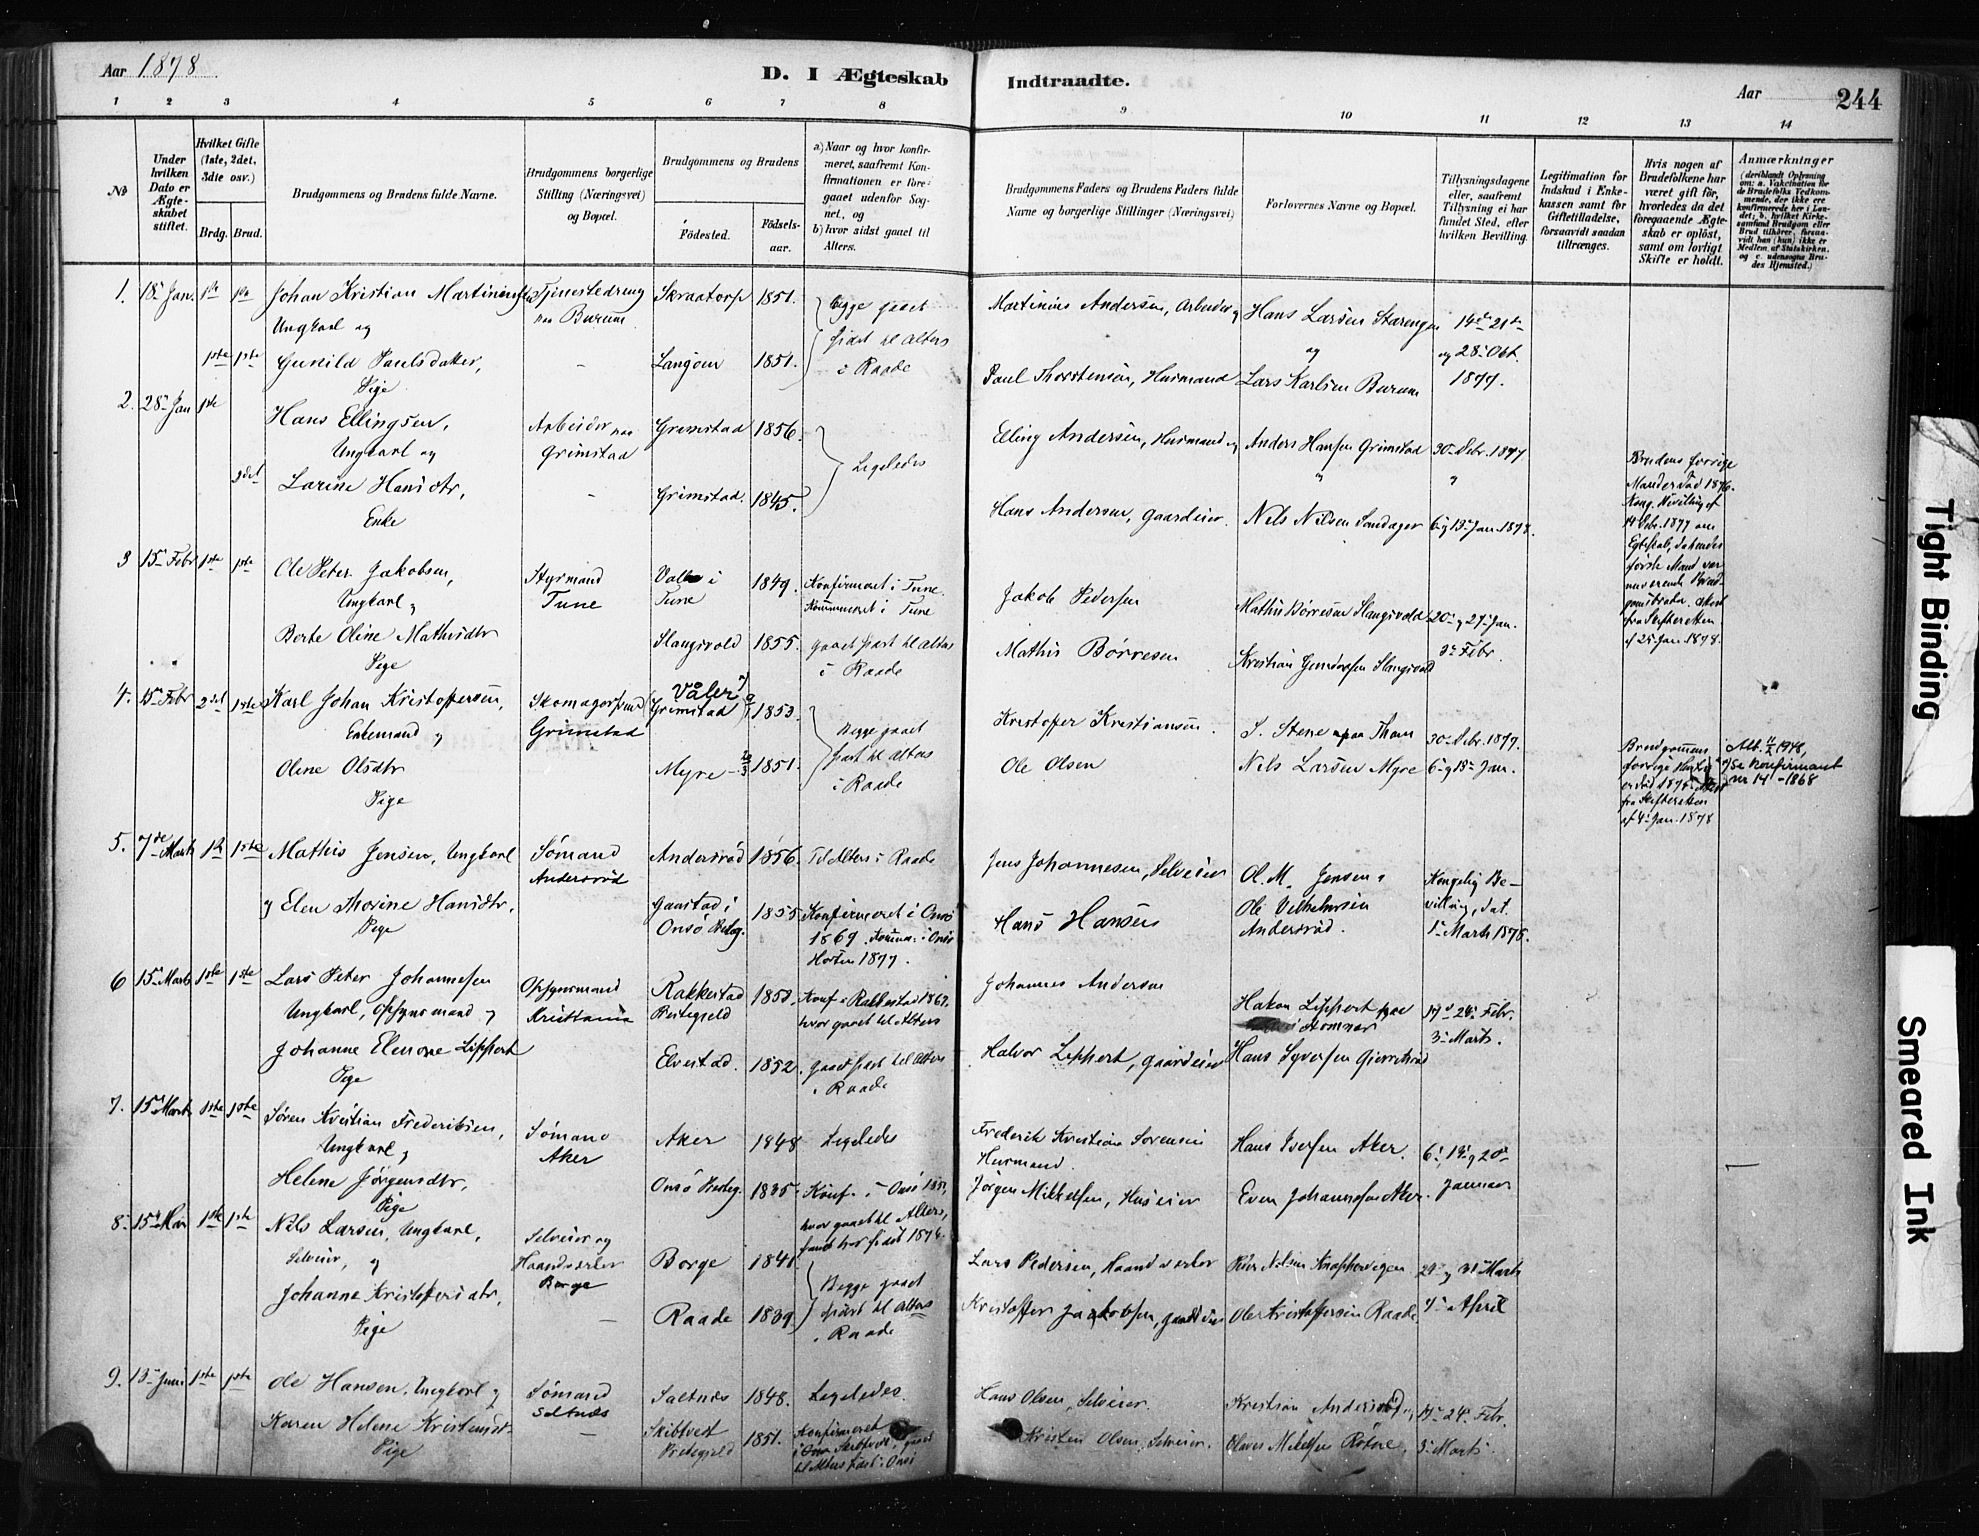 Aar 1878.
D. I Ægteskab Indtraadte.
Aar
244
1 2 3 4 5 6 7 8 9 10 11 12 13 14
No
Under hvilken Dato er Ægteskabet stiftet.
Hvilket Gifte (1ste, 2det, 3die osv.)
Brdg. Brud.
Brudgommens og Brudens fulde Navne.
Brudgommens borgerlige Stilling (Næringsvei) og Bopæl.
Brudgommens og Brudens
Fødested. Fødselsaar.
a) Naar og hvor konfirmeret, saafremt Konfirmationen er foregaaet udenfor Sognet, og
b) hvor sidst gaaet til Alters.
Brudgommens Faders og Brudens Faders fulde Navne og borgerlige Stillinger (Næringsvei)
Forlovernes Navne og Bopæl.
Tillysningsdagene eller, saafremt Tillysning ei har fundet Sted, efter hvilken Bevilling.
Legitimation for Indskud i Enkekassen samt for Giftetilladelse, forsaavidt saadan tiltrænges.
Hvis nogen af Brudefolkene har været gift før, hvorledes da det foregaaende Ægteskab er opløst, samt om lovligt Skifte er holdt.
Anmærkninger
1. 18 Jan. 1ste 1ste Johan Kristian Martiniussen Tjenestedreng Skraatorp 1851. Begge gaaet Martinius Andersen, Arbeider og Hans Larsen Starengen 14de 21de
Ungkarl og paa Burum sidst til Alters og og 28 Okt.
1ste 1ste Gunild Paulsdatter, - Langøen 1851. i Raade Paul Thorstensen, Husmand Lars Karlsen Burum 1877.
Pige
2. 28 Jan 1ste Hans Ellingsen, Arbeider paa Grimstad 1856. Elling Andersen, Husmand og Anders Hansen Grimstad 30 Debr. 1877
Ungkarl og Grimstad Ligeledes og og
2det Larine Hansdtr, - Grimstad. 1845. Hans Andersen, Gaardeier. Nils Nilsen Sondager 6 og 13 Jan. 1878.
Enke
Brudens forrige
Mand er død 1876.
Kong. Bevilling af
14 Debr. 1877 om
Egteskab, da hendes
første Mand var
nuværende Brud-
goms broder. Attest
fra Skifteretten
af 25 Jan. 1878.
3 15 Febr 1ste 1ste Ole Peter Jakobsen, Styrmand Valle i 1849. Konfirmeret i Tune. Jakob Pedersen Mathis Børresen Slangsvold 20 og 27 Jan.
Ungkarl og Tune Tune Kommuneret i Tune
Berte Oline Mathisdtr Slangsvold 1855. gaaet sidst til Alters Mathis Børresen Kristian Gundersen Slangsvold 3 Febr.
Pige i Raade
4. 15 Febr 2det 1ste Karl Johan Kristoffersen, Skomagersvend Våler (Grimstad) 1853. Begge gaaet Kristoffer Kristiansen. S. Stene paa Thom 30 Debr. 1877.
Enkemand og Grimstad sidst til Alters
Oline Olsdtr Myre 1851. i Raade Ole Olsen Nils Larsen Myre 6 og 13 Jan.
Pige
Brudgommens
forrige Hustru
er død 1877. Attest
fra Skifteretten
af 4 Jan. 1878
Alb. 11/2 1948,
se konfirmant
nr 14 - 1868
5. 7de Marts 1ste 1ste Mathis Jensen, Ungkarl Sømand Andersrød 1856. Til Alters i Raade Jens Johannesen, Selveier O. M. Jensen og Kongelig Be-
Andersrød
og Elen Thorine Hansdtr. Gaustad i 1855 Konfirmeret i Onsø Hans Hansen Ole Vilhelmsen villing, dat.
Pige Onsø Prstg. 1869. Komm. i Onsø Andersrød. 1 Marts 1878.
Horten 1877.
6 15 Marts 1ste 1ste Lars Peter Johannesen Opsynsmand Rakkestad 1850. Konf. i Rakkestad 1867. Johannes Andersen Hakon Lippert paa 17 24 Febr.
Ungkarl, Opsynsmand og Kristiania Præstegjeld hvor gaaet til Alters Stomner
Johanne Elenore Lippert Elvestad. 1852. gaaet sidst til Alters Halvor Lippert, Gaardeier Hans Syversen 3 Marts.
Pige i Raade
7. 15 Marts 1ste 1ste Søren Kristian Frederiksen, Sømand Aker 1848 Ligeledes Frederik Kristian Sorensen Hans Iversen Aker. 6, 13 og 20
Ungkarl, og Aker Husmand.
Helene Jørgensdtr, Onsø Prstg. 1835. Konf. i Onsø Jørgen Mikkelsen, Huseier Even Johannesen Aker. Januar
Pige hvor gaaet til Alters,
8. 15 Mar 1ste 1ste Nils Larsen, Ungkarl, Selveier og Borge 1841 Begge gaaet Lars Pedersen, Haandverker Peer Nilsen 24 og 31 Marts
Selveier, og Haandverker
Borge
Johanne Kristoffersdtr, - Raade 1839 sidst til Alters Kristoffer Jakobsen, Gaardeier Ole Kristoffersen Raade 7 April
Pige i Raade
9. 13 Juni 1ste 1ste Ole Hansen, Ungkarl og Sømand Saltnæs 1848. Ligeledes. Hans Olsen, Selveier. Kristian Andersrød og 17 24 Febr.
Saltnæs
Karen Helene Kristensdtr. - Skibtvet 1851. Konfirmeret Kristen Olsen, Selveier. Olaves Mikelsen 3 Marts.
Pige Prstgjeld i Skibtvet, gaaet
til Alters sidst i Onsø
Tight Binding
Smeared Ink